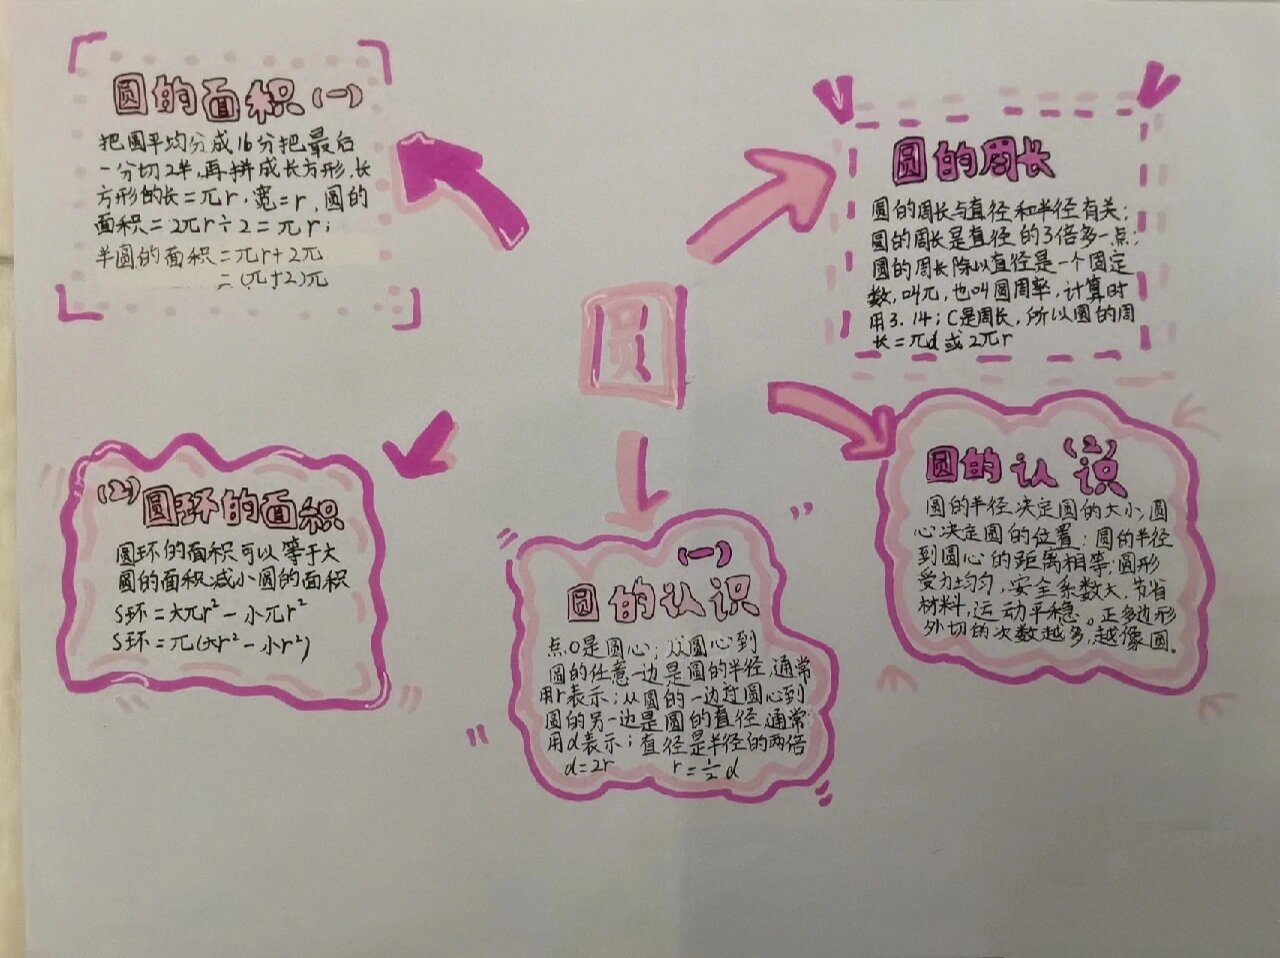 圆
圆的面积(一)
把圆平均分成16分把最后
一分切2半,再拼成长方形,长
方形的长=πr,宽=r,圆的
面积=2πr÷2=πr;
半圆的面积=πr+2π
=(π+2)π
圆的周长
圆的周长与直径和半径有关;
圆的周长是直径的3倍多一点;
圆的周长除以直径是一个固定
数,叫π,也叫圆周率,计算时
用3.14;C是周长,所以圆的周
长=πd或2πr
(2)圆环的面积
圆环的面积可以等于大
圆的面积减小圆的面积
S环=大πr²-小πr²
S环=π(大r²-小r²)
(一)
圆的认识
点O是圆心;从圆心到
圆的任意一边是圆的半径,通常
用r表示;从圆的一边过圆心到
圆的另一边是圆的直径,通常
用d表示;直径是半径的两倍
d=2r r=½d
(2)
圆的认识
圆的半径决定圆的大小,圆
心决定圆的位置;圆的半径
到圆心的距离相等;圆形
受力均匀,安全系数大,节省
材料,运动平稳。正多边形
外切的次数越多,越像圆。